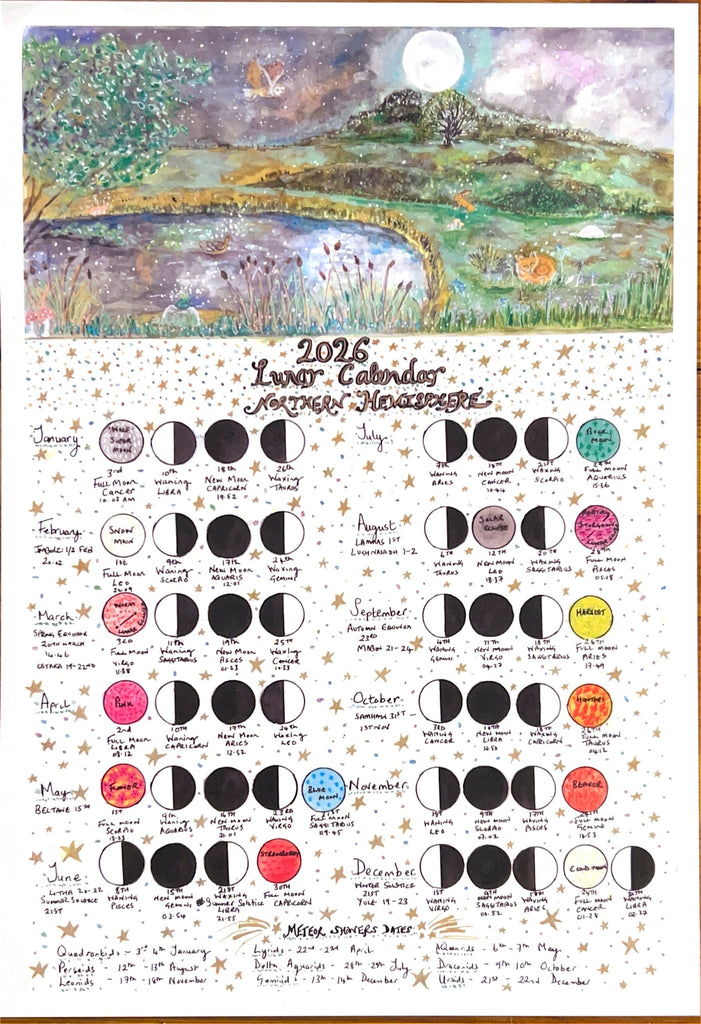 2026
Lunar Calendar
Northern Hemisphere
January
WOLF SUPER MOON
3rd
Full Moon
Cancer
10.03 AM
10th
Waning
LIBRA
18th
New Moon
CAPRICORN
19.52
26th
Waxing
TAURUS
February
IMBOLC 1/2 FEB
20.02
SNOW MOON
1st
Full Moon
LEO
9th
Waning
SCORPIO
17th
New Moon
AQUARIS
12.01
24th
Waxing
Gemini
March
SPRING EQUINOX
20TH MARCH
14.46
OSTARA 19-22ND
WORM
LUNAR ECLIPSE
3RD
Full Moon
VIRGO
11.38
11th
Waning
SAGITTARIUS
19th
New Moon
PISCES
01.23
25th
Waxing
Cancer
April
Pink
2nd
Full Moon
LIBRA
03.12
10th
Waning
CAPRICORN
17th
New Moon
ARIES
12.52
24th
Waxing
LEO
May
BELTANE 15th
FLOWER
1st
Full moon
SCORPIO
9th
Waning
AQUARIUS
16th
New Moon
TAURUS
21.01
23rd
Waxing
VIRGO
BLUE MOON
31st
Full Moon
SAGITTARIUS
09.45
June
LITHA 20-22
Summer Solstice
21ST
8th
WANING
PISCES
15th
New Moon
Gemini
03.54
21st
Waxing
Summer Solstice
LIBRA
21.55
STRAWBERRY
30th
Full Moon
CAPRICORN
July
7th
WANING
ARIES
New Moon
CANCER
21st
WAXING
SCORPIO
BUCK MOON
29th
Full Moon
AQUARIUS
15.36
August
LAMMAS 1ST
LUGHNASADH 1-2
6th
WANING
TAURUS
SOLAR ECLIPSE
12th
NEW MOON
LEO
18.37
20th
WAXING
SAGITTARIUS
PARTIAL
STURGEON
LUNAR
28th
Full Moon
PISCES
September
AUTUMN EQUINOX
23RD
MABON 21-24
4th
WANING
Gemini
11th
New Moon
VIRGO
04.27
18th
WAXING
SAGITTARIUS
HARVEST
26th
FULL MOON
ARIES
17.49
October
SAMHAIN 31ST -
1ST NOV
3rd
WANING
CANCER
New Moon
LIBRA
18th
WAXING
CAPRICORN
HUNTERS
26th
Full Moon
TAURUS
04.12
November
1st
WANING
LEO
9th
New Moon
SCORPIO
07.02
17th
WAXING
PISCES
BEAVER
24th
Full Moon
Gemini
14.53
December
WINTER SOLSTICE
21ST
YULE 19-23
1st
WANING
VIRGO
9th
New Moon
SAGITTARIUS
WAXING
ARIES
COLD MOON
24th
Full Moon
CANCER
01.28
30th
WANING
LIBRA
METEOR SHOWERS DATES
Quadrantids - 3rd 4th January
Lyrids - 22nd - 23rd April
Perseids - 12th - 13th August
Delta Aquarids - 28th - 29th July
Draconids - 9th 10th October
Leonids - 17th - 18th November
Geminids - 13th - 14th December
Ursids - 21st - 22nd December